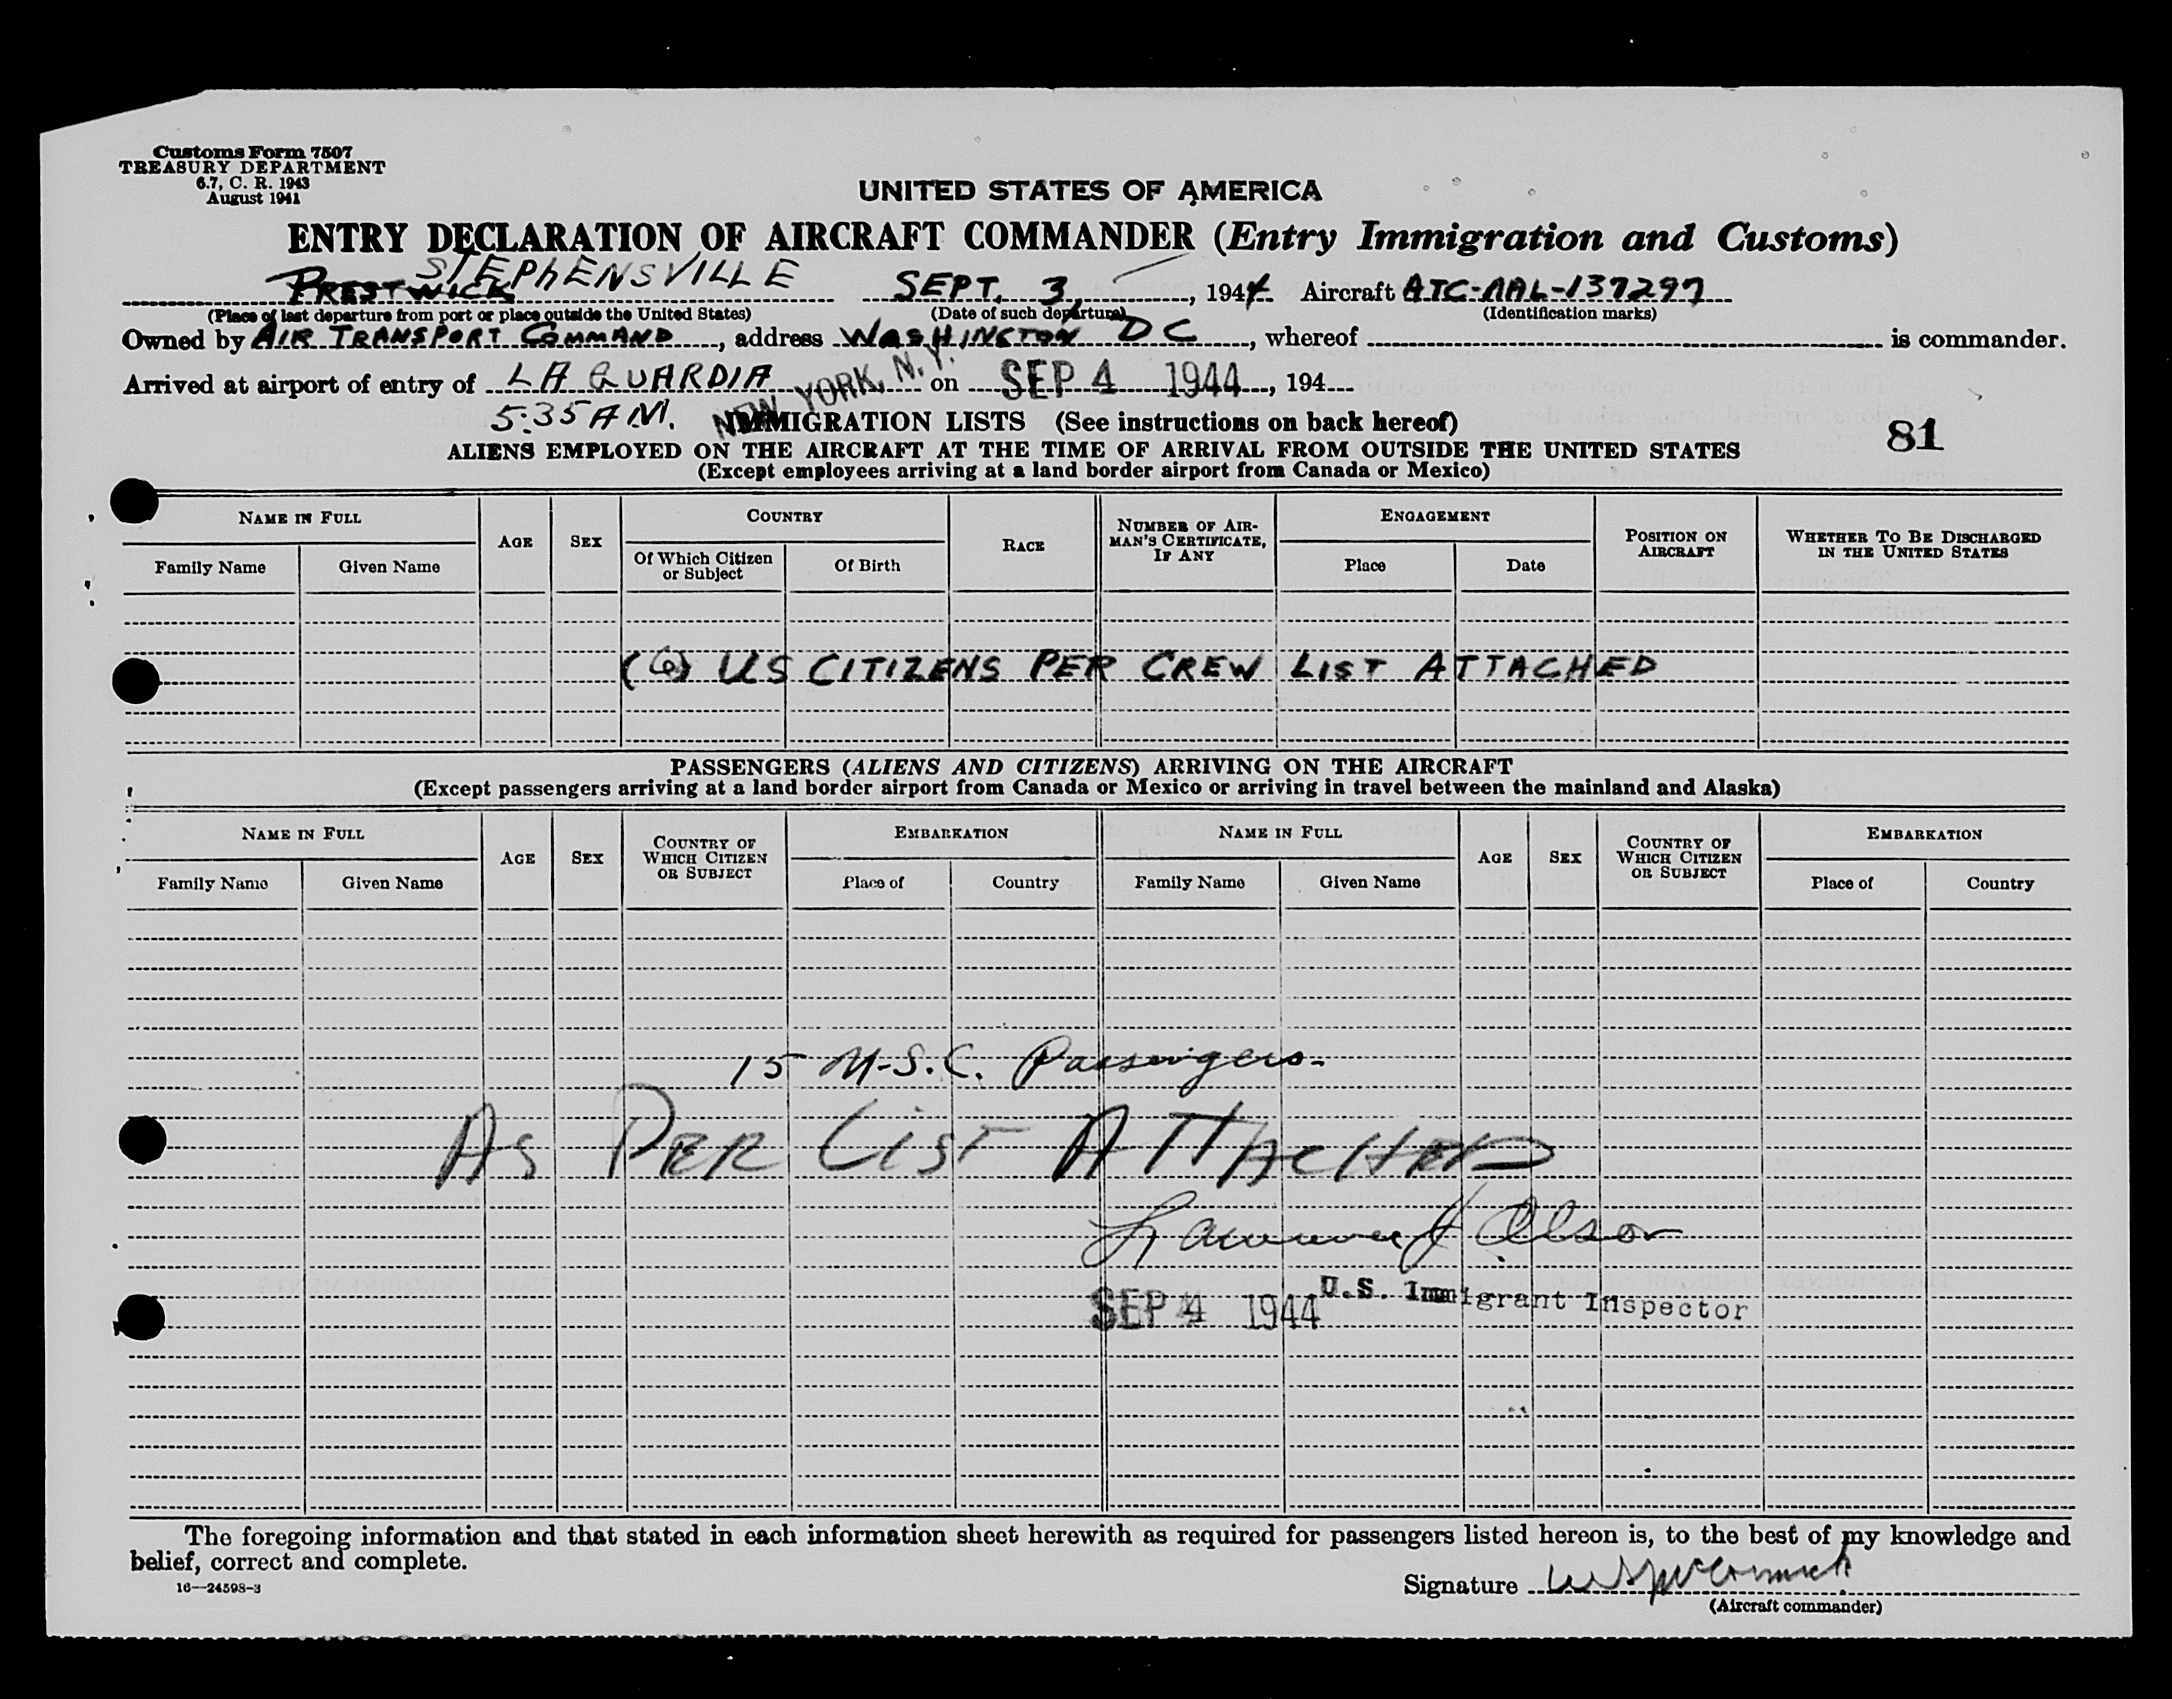 Customs Form 7507
TREASURY DEPARTMENT
6.7, C. R. 1943
August 1941
UNITED STATES OF AMERICA
ENTRY DECLARATION OF AIRCRAFT COMMANDER (Entry Immigration and Customs)
STEPHENSVILLE
PRESTWICK SEPT. 3, 1944 Aircraft ATC-AAL-137297
(Place of last departure from port or place outside the United States) (Date of such departure) (Identification marks)
Owned by AIR TRANSPORT COMMAND, address WASHINGTON DC, whereof is commander.
Arrived at airport of entry of LA GUARDIA NEW YORK, N.Y. on SEP 4 1944, 194
5:35 A.M. IMMIGRATION LISTS (See instructions on back hereof)
81
ALIENS EMPLOYED ON THE AIRCRAFT AT THE TIME OF ARRIVAL FROM OUTSIDE THE UNITED STATES
(Except employees arriving at a land border airport from Canada or Mexico)
NAME IN FULL AGE SEX COUNTRY RACE NUMBER OF AIR-MAN'S CERTIFICATE, IF ANY ENGAGEMENT POSITION ON AIRCRAFT WHETHER TO BE DISCHARGED IN THE UNITED STATES
Family Name Given Name Of Which Citizen or Subject Of Birth Place Date
(6) US CITIZENS PER CREW LIST ATTACHED
PASSENGERS (ALIENS AND CITIZENS) ARRIVING ON THE AIRCRAFT
(Except passengers arriving at a land border airport from Canada or Mexico or arriving in travel between the mainland and Alaska)
NAME IN FULL AGE SEX COUNTRY OF WHICH CITIZEN OR SUBJECT EMBARKATION NAME IN FULL AGE SEX COUNTRY OF WHICH CITIZEN OR SUBJECT EMBARKATION
Family Name Given Name Place of Country Family Name Given Name Place of Country
15 U.S.C. Passengers.
AS PER LIST ATTACHED
Lawrence J Olson
U.S. Immigrant Inspector
SEP 4 1944
The foregoing information and that stated in each information sheet herewith as required for passengers listed hereon is, to the best of my knowledge and
belief, correct and complete.
16—24598-3
Signature McCormick
(Aircraft commander)